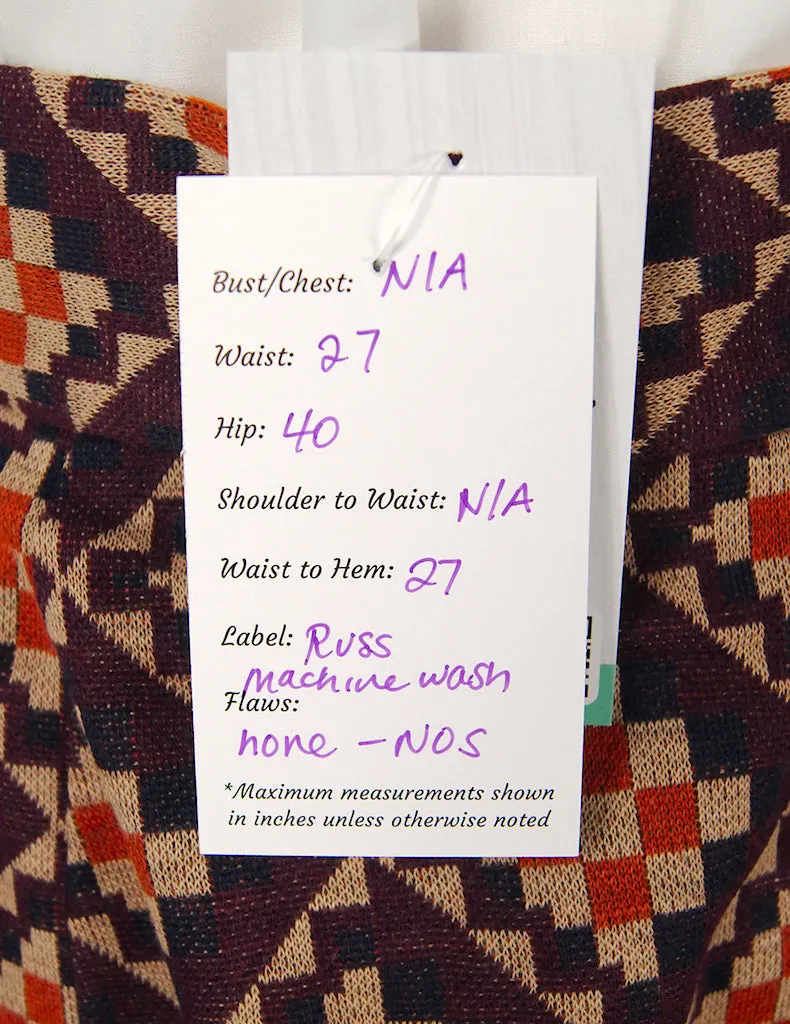 Bust/Chest: N/A
Waist: 27
Hip: 40
Shoulder to Waist: N/A
Waist to Hem: 27
Label: Russ
machine wash
Flaws:
none – NOS
*Maximum measurements shown
in inches unless otherwise noted